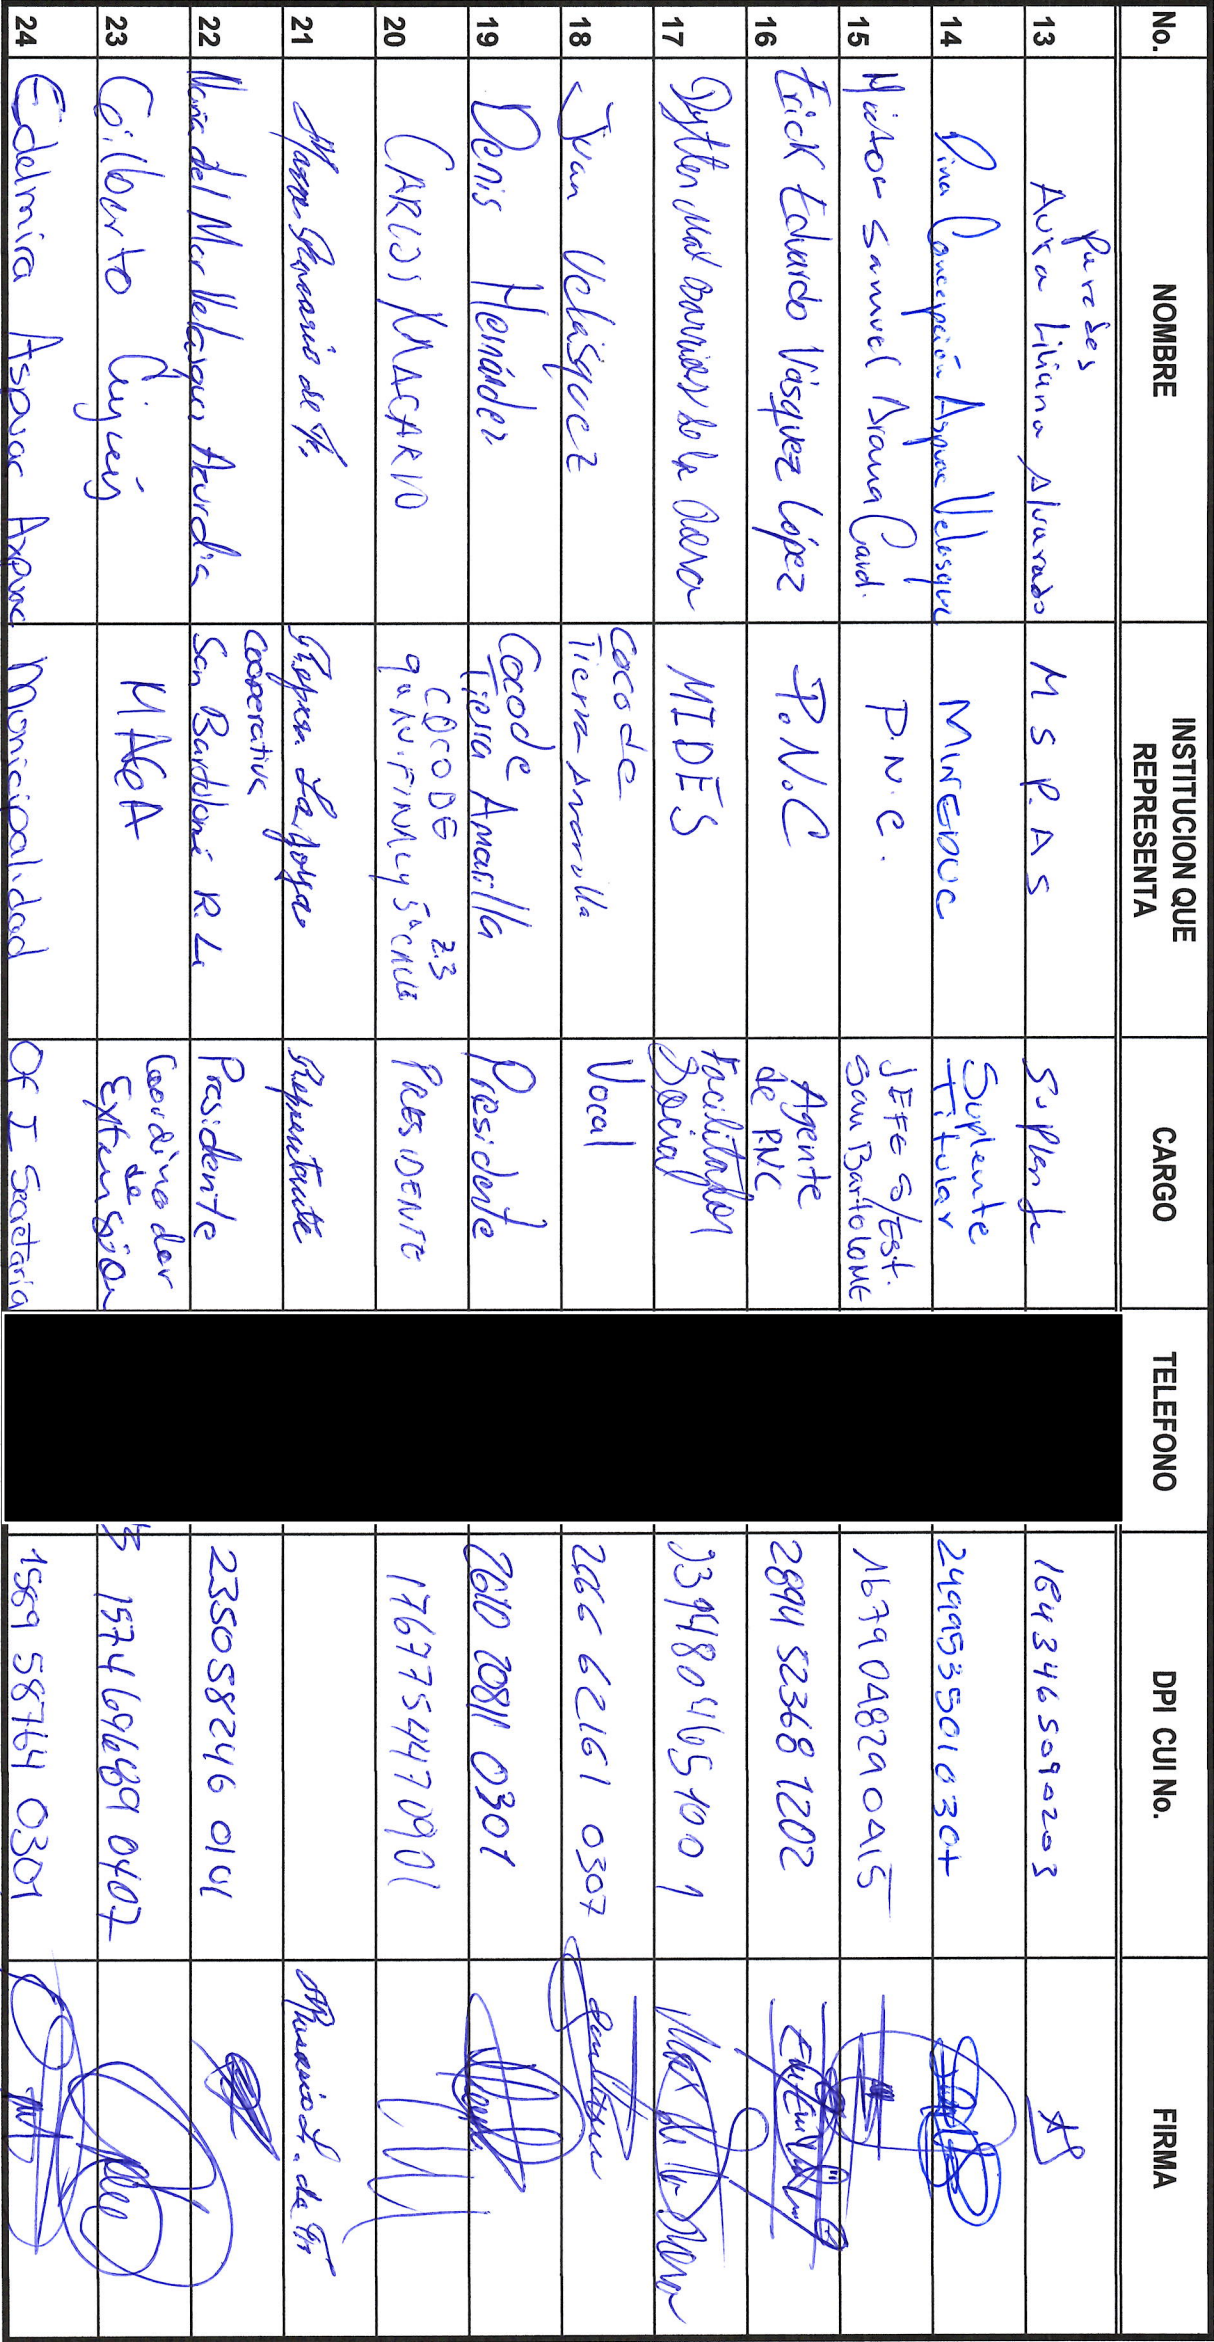 No. NOMBRE INSTITUCION QUE REPRESENTA CARGO TELEFONO DPI CUI No. FIRMA
13 Paredes Aura Liliana Alvarado M S P. A S Suplente 1643465090203
14 Dina Concepción Aspuac Velasque MINEDUC Suplente Titular 2499535010301
15 Héctor Samuel Arana Card. P.N.C. JEFE S/Est. San Bartolomé 1679048290415
16 Erick Eduardo Vásquez López P.N.C Agente de PNC 2894 52368 1202
17 Max Barrios de la MIDES Facilitador Social
18 Juan Velásquez Cocode Tierra Amarilla Vocal 2666 62161 0307
19 Denis Hernández Cocode Tierra Amarilla Presidente 2610 20811 0301
20 CARLOS MACARIO COCODE 9a AV. FINAL y 5a CALLE Z.3 PRESIDENTE 1767754470901
21 Rosario de La Joya Representante
22 María del Mar Velásquez Azurdia Cooperativa San Bartolomé R.L. Presidente 235058246 0101
23 Gilberto MAGA Coordinador de Extensión 1574 69689 0407
24 Edelmira Aspuac Axpuac Monicipalidad Of I Secretaria 1569 58764 0301